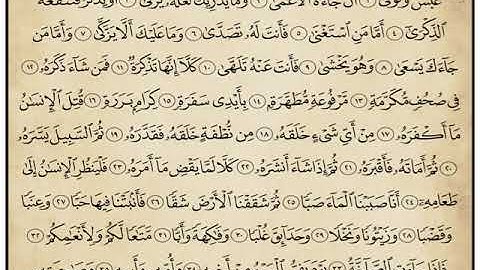 عَبَسَ وَتَوَلَّىٰٓ ١ أَن جَآءَهُ ٱلۡأَعۡمَىٰ ٢ وَمَا يُدۡرِيكَ لَعَلَّهُۥ يَزَّكَّىٰٓ ٣ أَوۡ يَذَّكَّرُ فَتَنفَعَهُ
ٱلذِّكۡرَىٰٓ ٤ أَمَّا مَنِ ٱسۡتَغۡنَىٰ ٥ فَأَنتَ لَهُۥ تَصَدَّىٰ ٦ وَمَا عَلَيۡكَ أَلَّا يَزَّكَّىٰ ٧ وَأَمَّا مَن
جَآءَكَ يَسۡعَىٰ ٨ وَهُوَ يَخۡشَىٰ ٩ فَأَنتَ عَنۡهُ تَلَهَّىٰ ١٠ كـَلَّآ إِنَّهَا تَذۡكِرَةٞ ١١ فَمَن شَآءَ ذَكَرَهُۥ ١٢
فِي صُحُفٖ مُّكَرَّمَةٖ ١٣ مَّرۡفُوعَةٖ مُّطَهَّرَةِۭ ١٤ بِأَيۡدِي سَفَرَةٖ ١٥ كِرَامِۭ بَرَرَةٖ ١٦ قُتِلَ ٱلۡإِنسَٰنُ
مَآ أَكۡفَرَهُۥ ١٧ مِنۡ أَيِّ شَيۡءٍ خَلَقَهُۥ ١٨ مِن نُّطۡفَةٍ خَلَقَهُۥ فَقَدَّرَهُۥ ١٩ ثُمَّ ٱلسَّبِيلَ يَسَّرَهُۥ
٢٠ ثُمَّ أَمَاتَهُۥ فَأَقۡبَرَهُۥ ٢١ ثُمَّ إِذَا شَآءَ أَنشَرَهُۥ ٢٢ كـَلَّا لَمَّا يَقۡضِ مَآ أَمَرَهُۥ ٢٣ فَلۡيَنظُرِ ٱلۡإِنسَٰنُ إِلَىٰ
طَعَامِهِۦٓ ٢٤ أَنَّا صَبَبۡنَا ٱلۡمَآءَ صَبّٗا ٢٥ ثُمَّ شَقَقۡنَا ٱلۡأَرۡضَ شَقّٗا ٢٦ فَأَنۢبَتۡنَا فِيهَا حَبّٗا ٢٧ وَعِنَبٗا
وَقَضۡبٗا ٢٨ وَزَيۡتُونٗا وَنَخۡلٗا ٢٩ وَحَدَآئِقَ غُلۡبٗا ٣٠ وَفَٰكِهَةٗ وَأَبّٗا ٣١ مَّتَٰعٗا لَّكُمۡ وَلِأَنۡعَٰمِكُمۡ ٣٢
فَإِذَا جَآءَتِ ٱلصَّآخَّةُ ٣٣ يَوۡمَ يَفِرُّ ٱلۡمَرۡءُ مِنۡ أَخِيهِ ٣٤ وَأُمِّهِۦ وَأَبِيهِ ٣٥ وَصَٰحِبَتِهِۦ